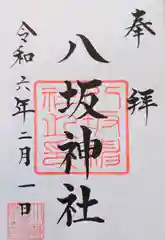 奉拝
八坂神社
令和六年二月一日